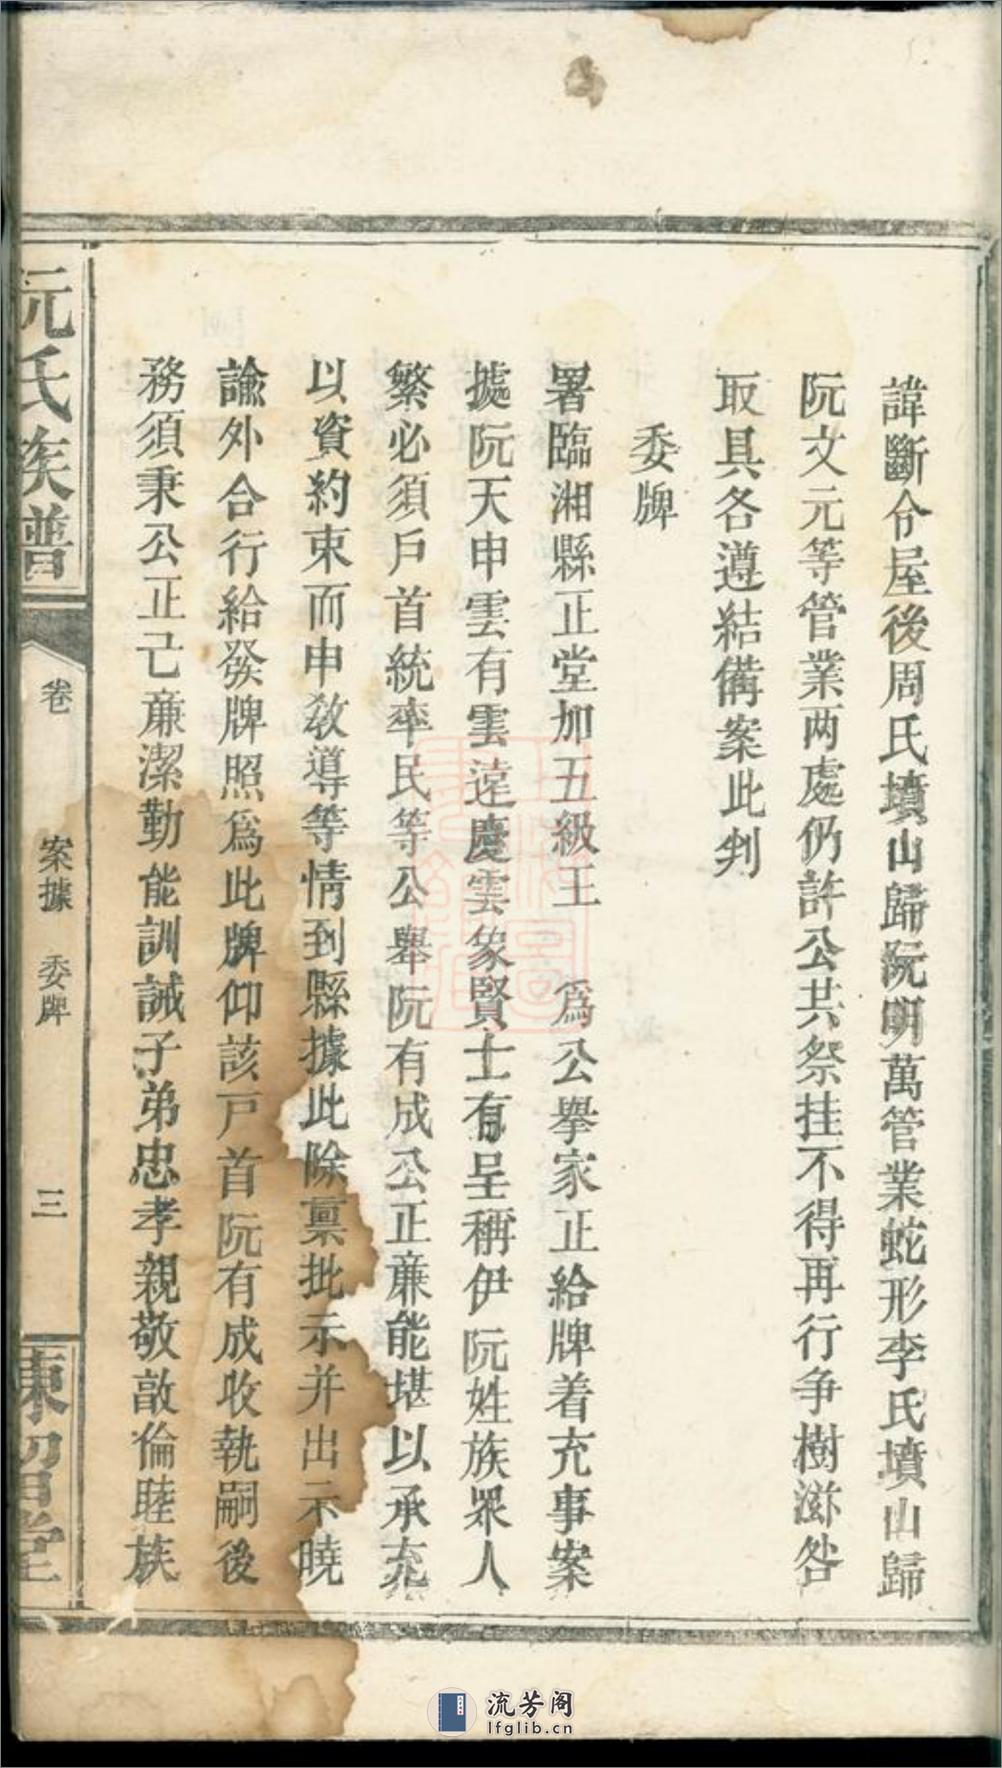 諱斷令屋後周氏墳山歸阮明萬管業蛇形李氏墳山歸
阮文元等管業两處仍許公共祭挂不得再行争樹滋咎
取具各遵結備案此判
委牌
署臨湘縣正堂加五級王　爲公舉家正給牌着充事案
據阮天申雲有雲遠慶雲象賢士有呈稱伊阮姓族眾人
繁必須戶首統率民等公舉阮有成公正亷能堪以承充
以資約束而申敎導等情到縣據此除稟批示并出示曉
諭外合行給發牌照爲此牌仰該戸首阮有成收執嗣後
務須秉公正己亷潔勤能訓誡子弟忠孝親敬敵倫睦族
阮氏族譜
卷
案據　委牌
三
東留堂
流芳阁
lfglib.cn